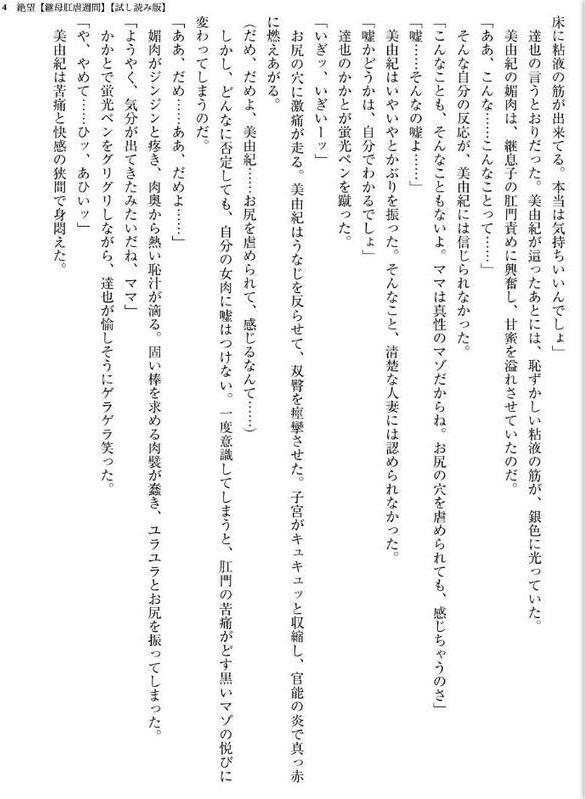 4 絶望【継母肛虐週間】【試し読み版】
床に粘液の筋が出来てる。本当は気持ちいいんでしょ」
達也の言うとおりだった。美由紀が這ったあとには、恥ずかしい粘液の筋が、銀色に光っていた。
美由紀の媚肉は、継息子の肛門責めに興奮し、甘蜜を溢れさせていたのだ。
「ああ、こんな……こんなことって……」
そんな自分の反応が、美由紀には信じられなかった。
「こんなことも、そんなこともないよ。ママは真性のマゾだからね。お尻の穴を虐められても、感じちゃうのさ」
嘘……そんなの嘘よ……」
美由紀はいやいやとかぶりを振った。そんなこと、清楚な人妻には認められなかった。
「嘘かどうかは、自分でわかるでしょ」
達也のかかとが蛍光ペンを蹴った。
「いぎッ、いぎぃーッ」
お尻の穴に激痛が走る。美由紀はうなじを反らせて、双臀を痙攣させた。子宮がキュキュッと収縮し、官能の炎で真っ赤
に燃えあがる。
(だめ、だめよ、美由紀……お尻を虐められて、感じるなんて……)
しかし、どんなに否定しても、自分の女肉に嘘はつけない。一度意識してしまうと、肛門の苦痛がどす黒いマゾの悦びに
変わってしまうのだ。
「ああ、だめ……ああ、だめよ……」
媚肉がジンジンと疼き、肉奥から熱い恥汁が滴る。固い棒を求める肉襞が蠢き、ユラユラとお尻を振ってしまった。
「ようやく、気分が出てきたみたいだね、ママ」
かかとで蛍光ペンをグリグリしながら、達也が愉しそうにゲラゲラ笑った。
「や、やめて……ヒッ、あひいッ」
美由紀は苦痛と快感の狭間で身悶えた。